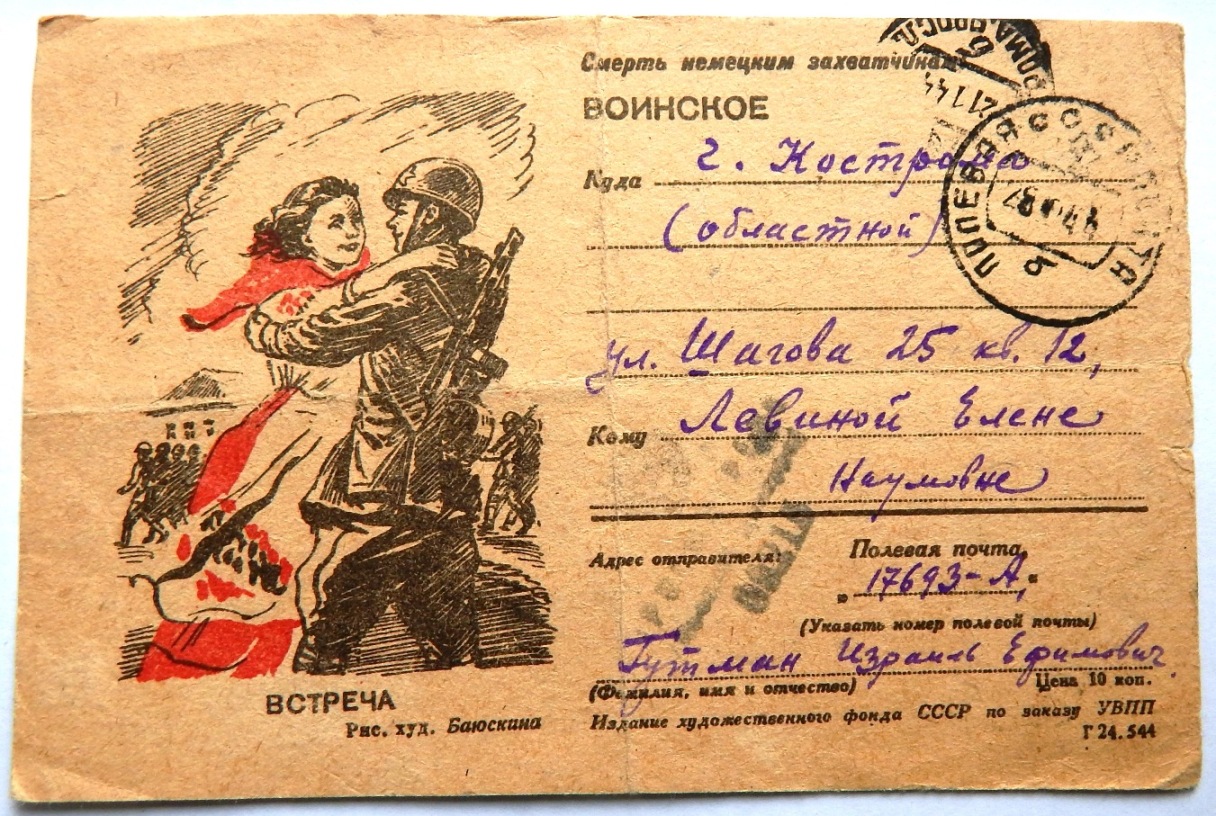 Смерть немецким захватчикам
ВОИНСКОЕ
Куда г. Кострома
(областной)
ул. Шагова 25 кв. 12,
Кому Левиной Елене
Наумовне
Адрес отправителя: Полевая почта
„17693-А"
(Указать номер полевой почты)
Гутман Израиль Ефимович
(Фамилия, имя и отчество) Цена 10 коп.
Издание художественного фонда СССР по заказу УВПП
Г 24.544
ВСТРЕЧА
Рис. худ. Баюскина
21 1 44
ПОЛЕВАЯ